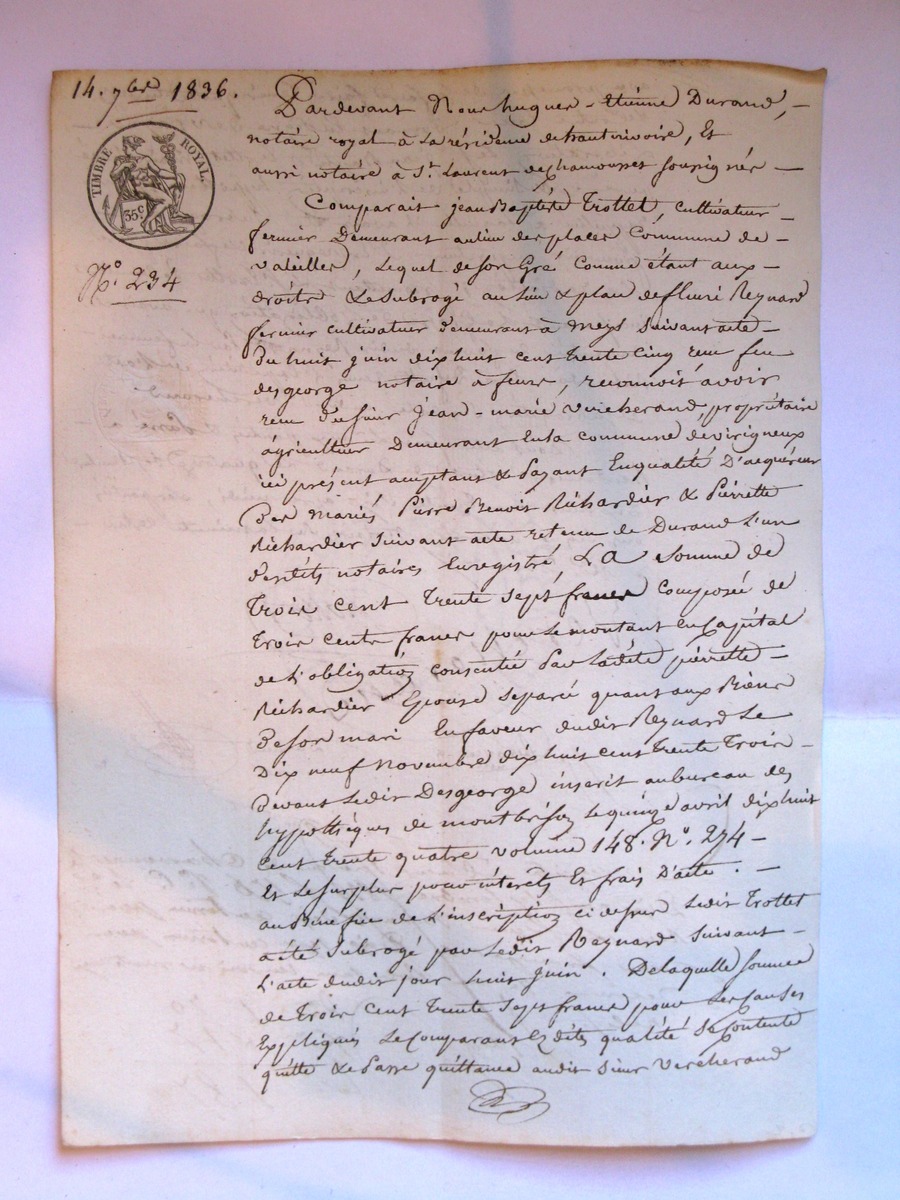 14. 7bre 1836.
TIMBRE ROYAL.
35c
No. 234
Pardevant Nous hugues-étienne Durand,
notaire royal à la résidence de hauterivoire, Et
aussi notaire à St. Laurent de chamousset soussignés
Comparait jean Baptiste Trottet, cultivateur
fermier Demeurant au lieu des places Commune de
valeilles, Lequel de son Gré Comme étant aux
droits & Le Subrogé au lieu & place de fleuri Reynard
fermier cultivateur Demeurant à meys Suivant acte
Du huit juin dix huit cent trente cinq reçu feu
desgeorge notaire à feurs, reconnoit avoir
reçu Du Sieur Jean-marie vercherand, propriétaire
agriculteur Demeurant En la commune de virigneux
ici présent acceptant & Payant En qualité D'acquéreur
Des mariés Pierre Benoit Richardier & Pierrette
Richardier Suivant acte retenu de Durand L'un
Desdits notaires Enregistré, La Somme de
Trois cent trente sept francs composée de
Trois cents francs pour le montant en Capital
de L'obligation consentie Par Ladite pierrette
Richardier Epouse separée quant aux Biens
De son mari En faveur dudit Reynard Le
Dix neuf Novembre dix huit cent trente Trois
Devant Ledit Desgeorge inscrit au bureau des
hypothèques de montbrison Le quinze avril dix huit
cent trente quatre volume 148. No. 274
Et Le surplus pour intérets Et frais D'acte.
au Bénéfice de L'inscription ci dessus Ledit Trottet
a été Subrogé par Ledit Reynard Suivant
L'acte dudit jour huit juin. De laquelle somme
de Trois Cent Trente Sept francs pour Les causes
Expliqués Le Comparant Esdites qualité Se Contente
quitte & Passe quittance audit Sieur Vercherand